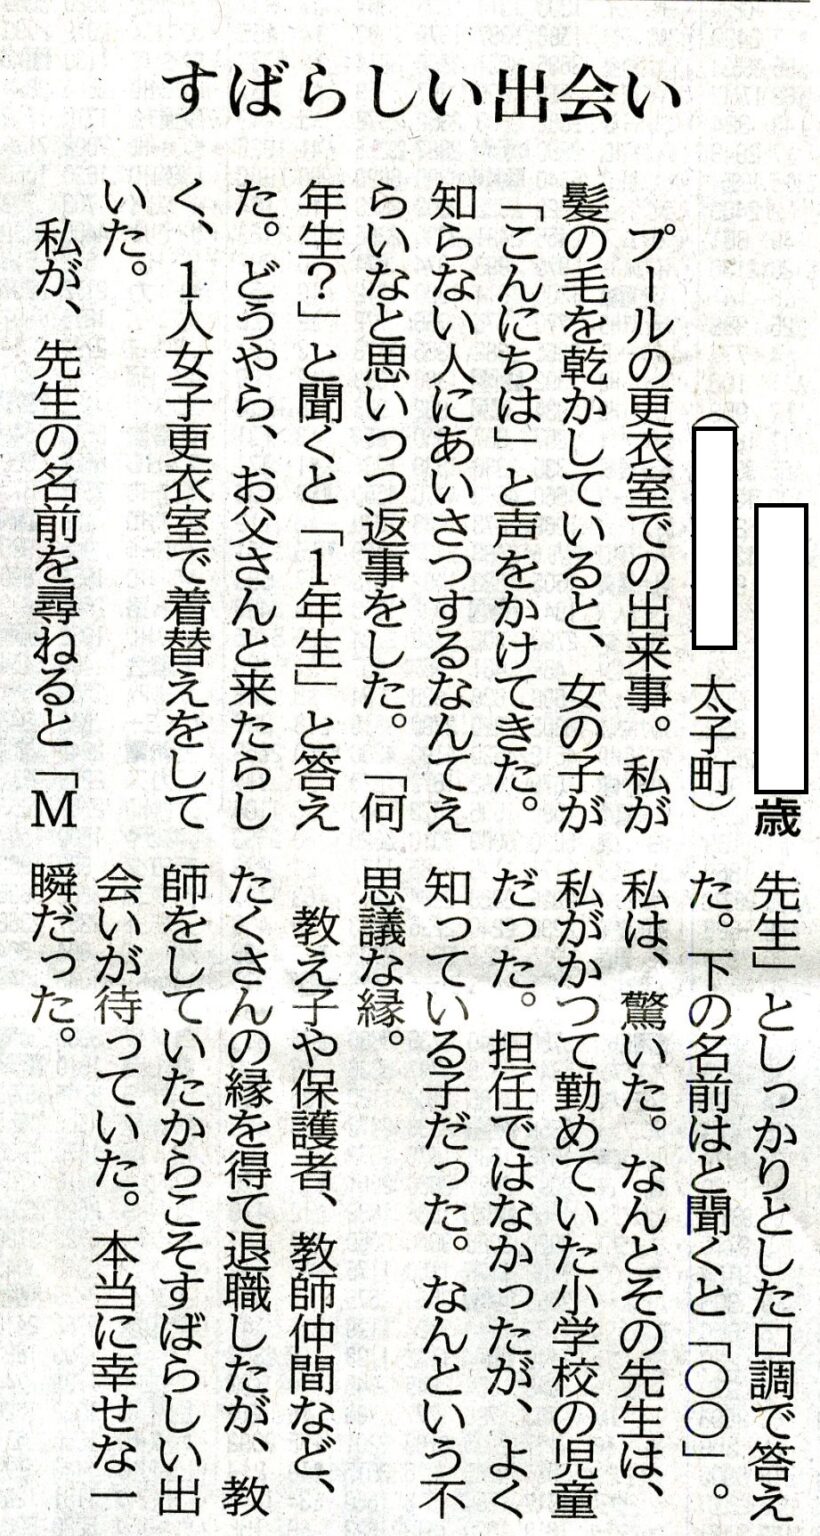 すばらしい出会い
歳
（
太子町）
プールの更衣室での出来事。私が
髪の毛を乾かしていると、女の子が
「こんにちは」と声をかけてきた。
知らない人にあいさつするなんてえ
らいなと思いつつ返事をした。「何
年生？」と聞くと「1年生」と答え
た。どうやら、お父さんと来たらし
く、1人女子更衣室で着替えをして
いた。
私が、先生の名前を尋ねると「M
先生」としっかりとした口調で答え
た。下の名前はと聞くと「〇〇」。
私は、驚いた。なんとその先生は、
私がかつて勤めていた小学校の児童
だった。担任ではなかったが、よく
知っている子だった。なんという不
思議な縁。
教え子や保護者、教師仲間など、
たくさんの縁を得て退職したが、教
師をしていたからこそすばらしい出
会いが待っていた。本当に幸せな一
瞬だった。